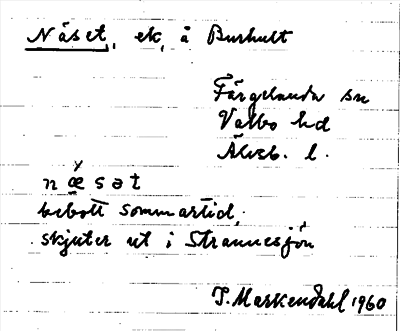 Näset, ek, å Burhult
Färgelanda sn
Valbo hd
Älvsb. l.
næsət
bebott sommartid,
skjuter ut i Strannesjön
J. Markendahl 1960